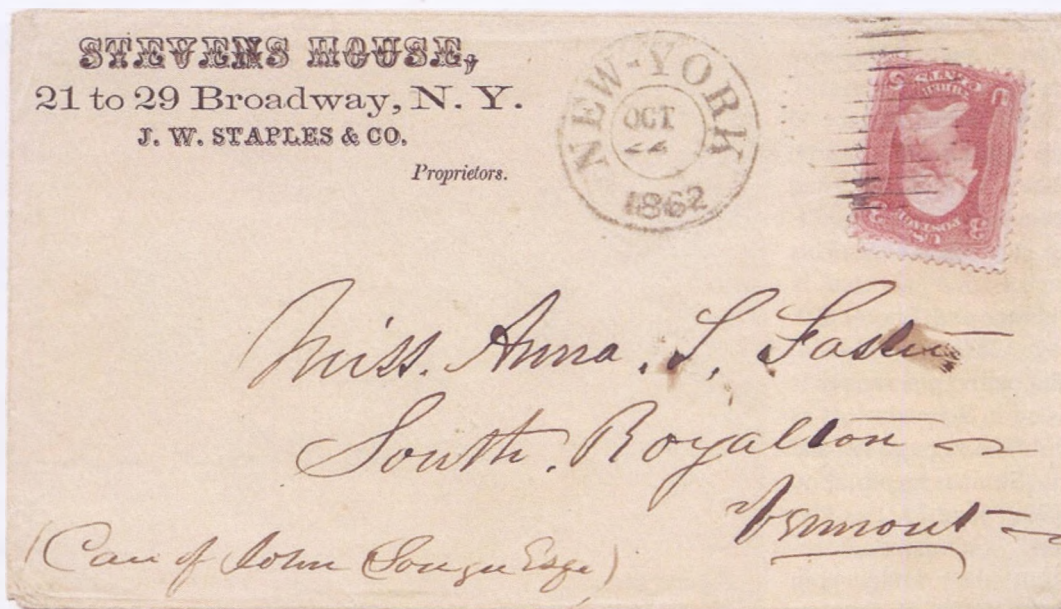 STEVENS HOUSE,
21 to 29 Broadway, N. Y.
J. W. STAPLES & CO.
Proprietors.
NEW-YORK
OCT
1862
U 3 CENTS
U.S. POSTAGE 3
Miss. Anna. S. Foster
South. Royalton
Vermont
(Care of John Esqr)